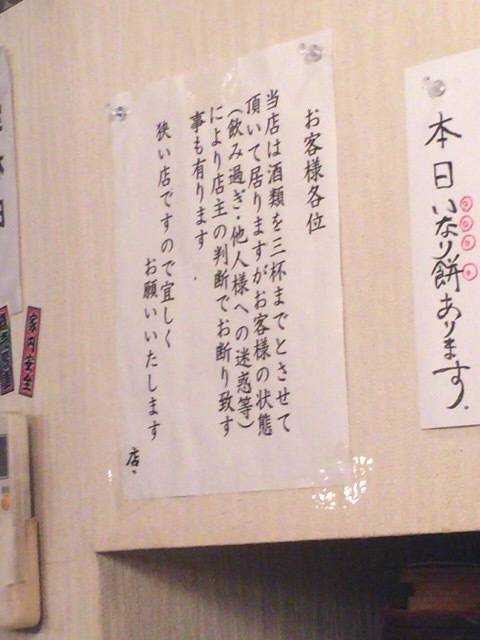 本日いなり餅あります.
お客様各位
当店は酒類を三杯までとさせて
頂いて居りますがお客様の状態
(飲み過ぎ・他人様への迷惑等)
により店主の判断でお断り致す
事も有ります
狭い店ですので宜しく
お願いいたします
店.
家内安全